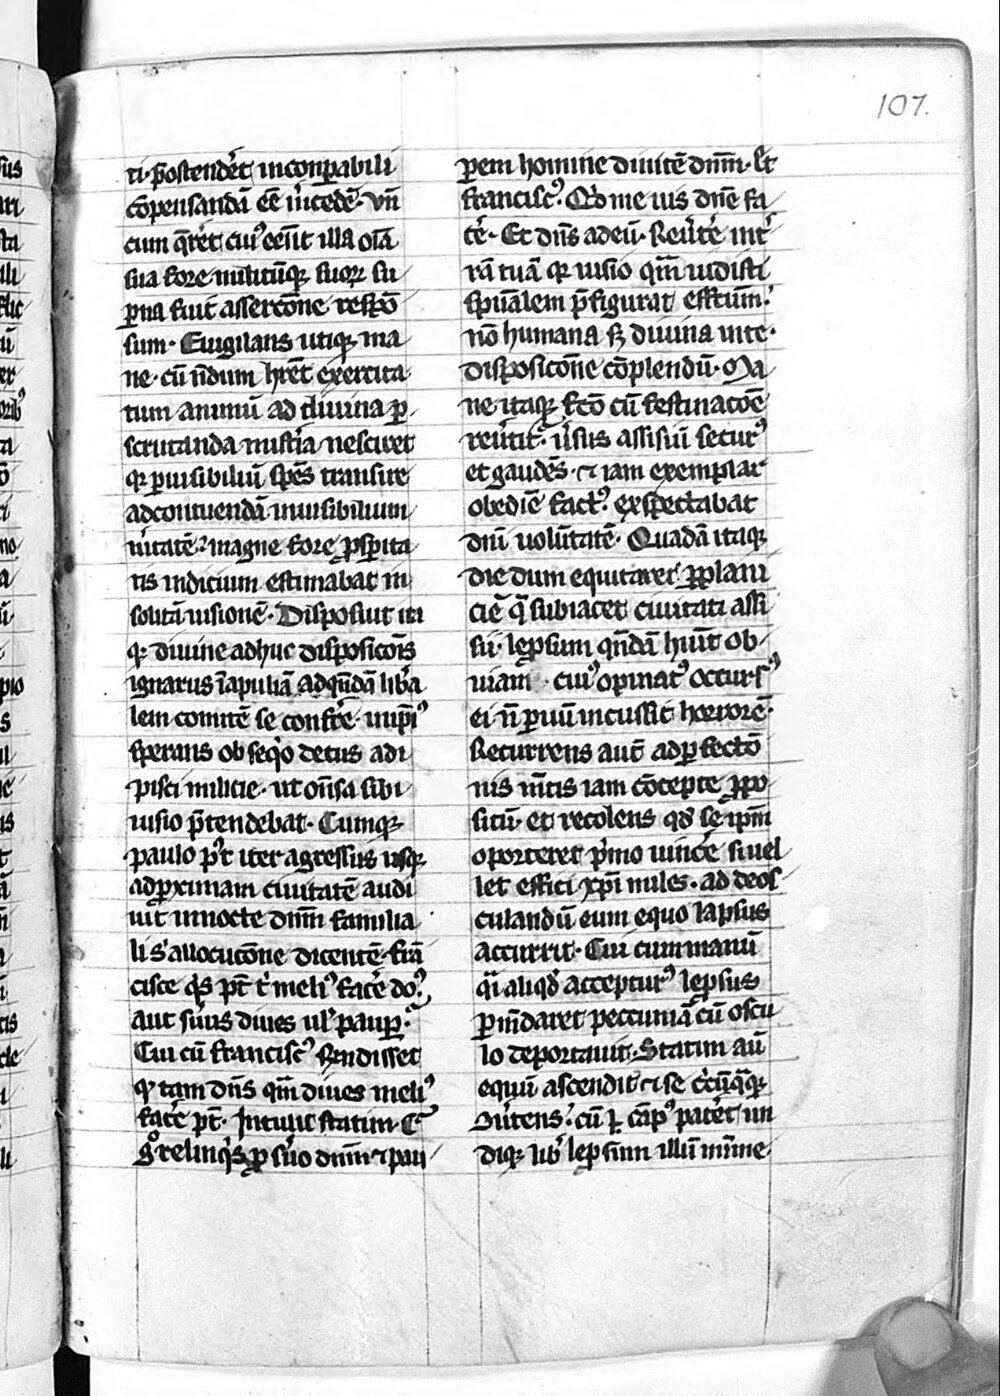 107.
ti p̄ostender̄t inconpabili
cōpensandā eē m̄cedē. vn̄
cum q̄rēt cui᷒ eēnt illa oīa
sua fore militūq; suoꝝ su
ꝑna fuit assercōne respō
sum. Euigilans utiq; ma
ne. cū nōdum hr̄et exercita
tum animū ad diuina ꝑ
scrutanda mist̄ia nesciret
qꝫ ꝑ uisibiliū spēs transire
ad contuendā inuisibilium
ūitatē. magne fore ꝓsp̄ita
tis indicium estimabat in
solitā uisionē. Disposuit ita
qꝫ diuine adhuc disposicōis
ignarus ī apuliā ad q̄ndā lib̄a
lem comitē se conferr̄e. in ip̄i᷒
sperans obseq̇o decus adi
pisci milicie. ut on̄sa sibi
uisio p̄tendebat. Cumqꝫ
paulo p᷒t iter agressus usqꝫ
ad ꝓximam ciuitatē audi
uit in nocte dn̄m familia
li s᷒ allocucōne dicentē. frā
cisce q̇s pt̄ t᷒ meli᷒ facēe do᷒.
aut s̄uus diues ul᷒ pauꝑ.
Cui cū francisc᷒ respondisset
qꝫ tam dn̄s qm̄ diues meli᷒
facēe pt̄. Intulit statim. Cᷓ
g᷒ relinq̇s ꝓ s̄uo dn̄m ⁊ pau
ꝑem homine diuitē dn̄m. Et
francisc᷒. Qd̄ me uis dn̄e fa
cē. Et dn̄s ad eū. Reūtēe int̄
rā tuā qꝫ uisio qm̄ uidisti
spūalem p̄figurat effctum.
nō humana sꝫ diuina inte.
disposicōne cōplendū. Ma
ne itaqꝫ fc̄o cū festinacōe
reūtit᷒ ūsus assisiū secur᷒
et gaudēs. ⁊ iam exemplar
obediē fact᷒. exspectabat
dn̄i uolūtatē. Quadā itaqꝫ
die dum equitaret ꝑ plani
ciē q̄ subiacet ciuitati assi
sii. lep̄sum qn̄dā hūit ob
uiam cui᷒ opinat᷒ occurs᷒
ei n̄ ꝑuū incussit horrorē.
Recurrens aut̄ ad ꝑfectō
nis m̄tis iam cōcepte ꝓpo
situ. et recolens qd̄ se ip̄m
oporteret p̄mo uincēe si uel
let effici xp̄i miles. ad deos
culandū eum equo lapsus
accurrit. Cui cum manū
q̄si aliqd̄ acceptur᷒ lepsus
p̄m̄daret peccuniā cū oscu
lo deportauit. Statim aū
equū ascendit ⁊ se c̄cūq̄qꝫ
ūtens. cū ꝑ cāp᷒ patēt un
diqꝫ lib᷒ lep̄sum illū mīme